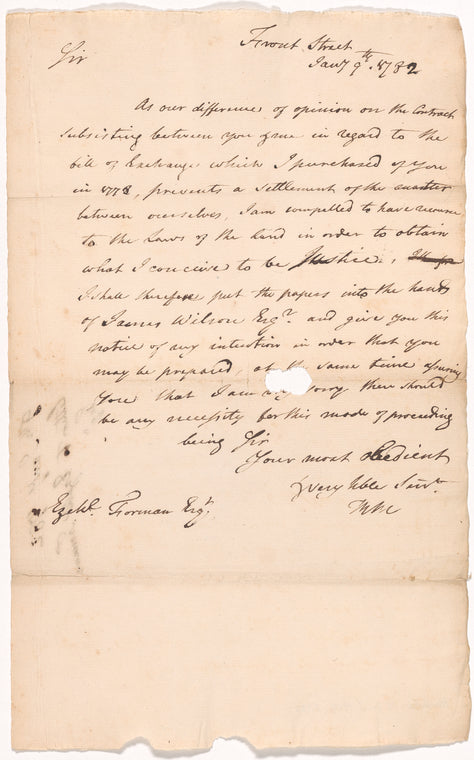 Front Street
Sir Jany 9th 1782
As our difference of opinion on the Contract
subsisting between you & me in regard to the
bill of Exchange which I purchased of you
in 1778, prevents a settlement of the matter
between ourselves, I am compelled to have recourse
to the Laws of the land in order to obtain
what I conceive to be Justice,
I shall therefore put the papers into the hands
of James Wilson Esqr. and give you this
notice of my intention in order that you
may be prepared, at the same time assuring
you that I am sorry there should
be any necessity for this mode of proceeding
being Sir
Your most Obedient
& very hble Servt.
Ezekl. Forman Esqr.